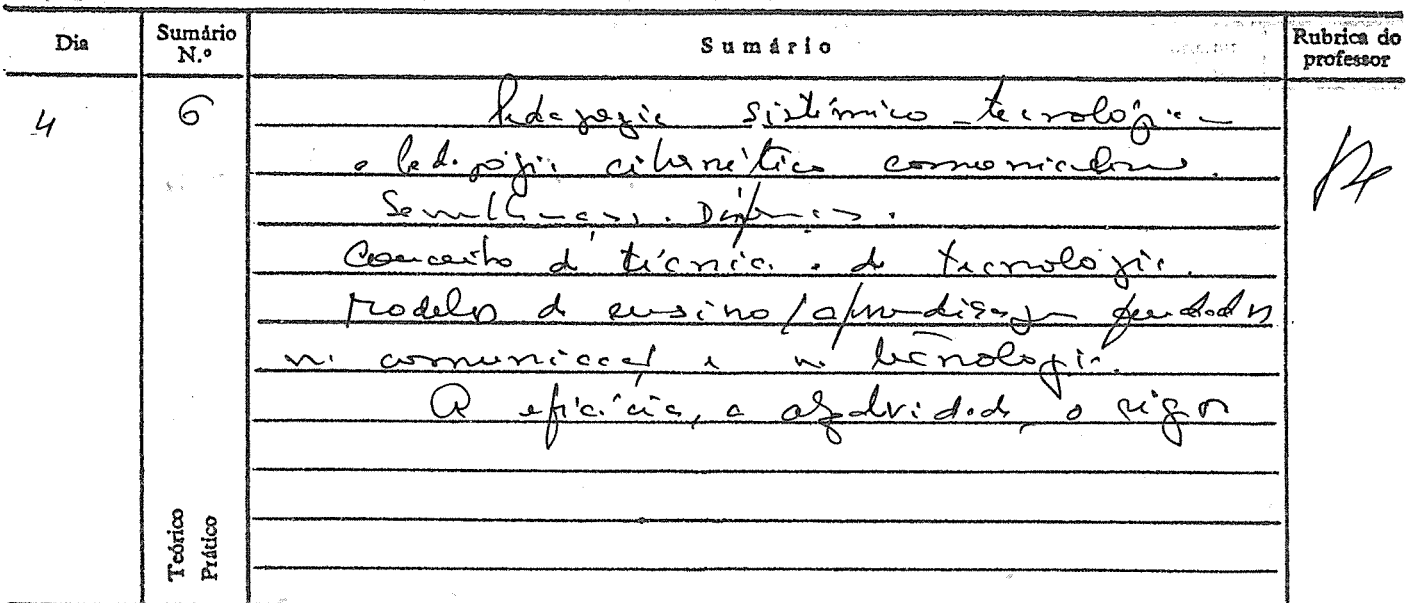 Dia
Sumário N.º
Sumário
Rubrica do professor
4
6
Pedagogia sistémico-tecnológica
e Pedagogia cibernético comunicacional.
Semelhanças. Diferenças.
Conceito de técnica e de tecnologia.
Modelos de ensino/aprendizagem fundados
na comunicação e na tecnologia.
A eficácia, a objectividade, o rigor
Teórico
Prático